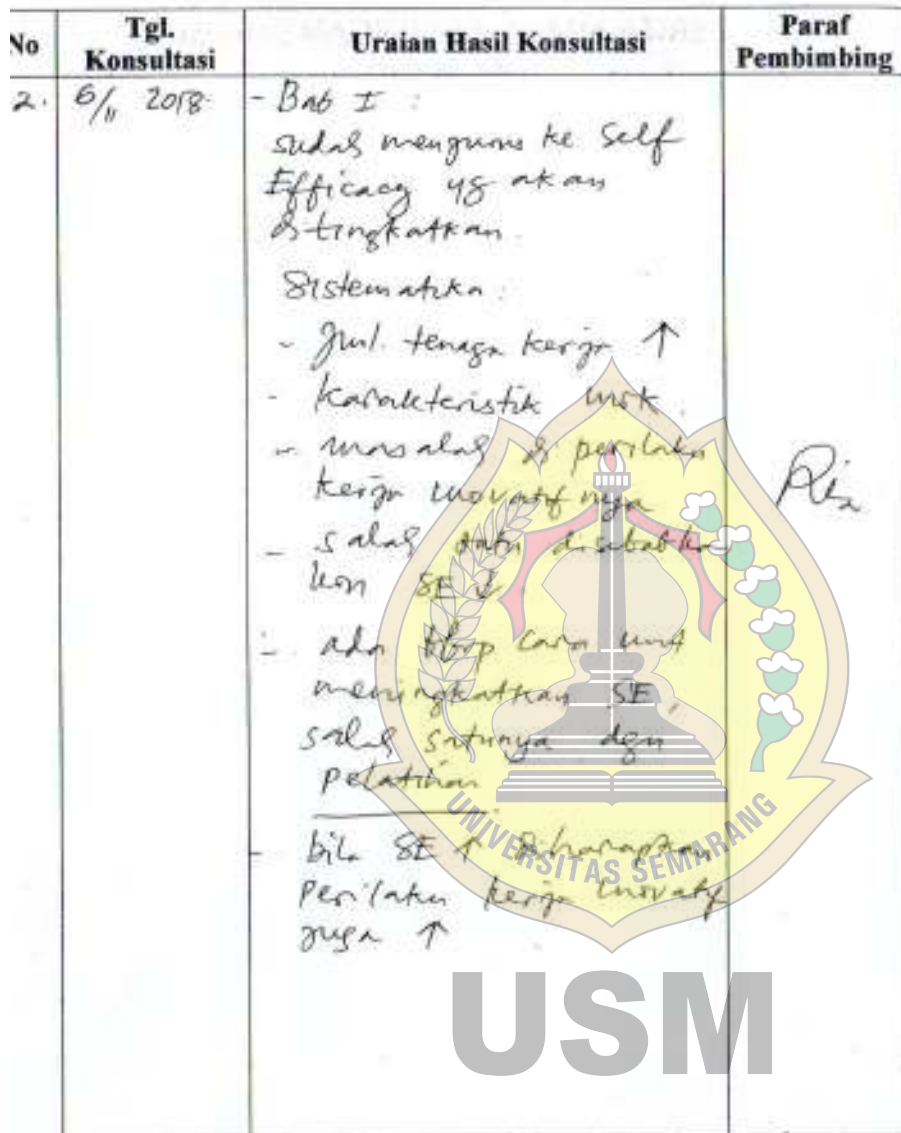 No
Tgl. Konsultasi
Uraian Hasil Konsultasi
Paraf Pembimbing
2.
6/11 2018
- Bab I :
sudah mengurus ke Self
Efficacy yg akan
ditingkatkan.
Sistematika :
- Jml. tenaga kerja ↑
- Karakteristik
- masalah di perilaku
kerja inovatif nya
- salah satu disebabkan
krn SE ↓
- ada bbrp cara unt
meningkatkan SE,
salah satunya dgn
pelatihan
- bila SE ↑ diharapkan
perilaku kerja inovatif
juga ↑
UNIVERSITAS SEMARANG
USM